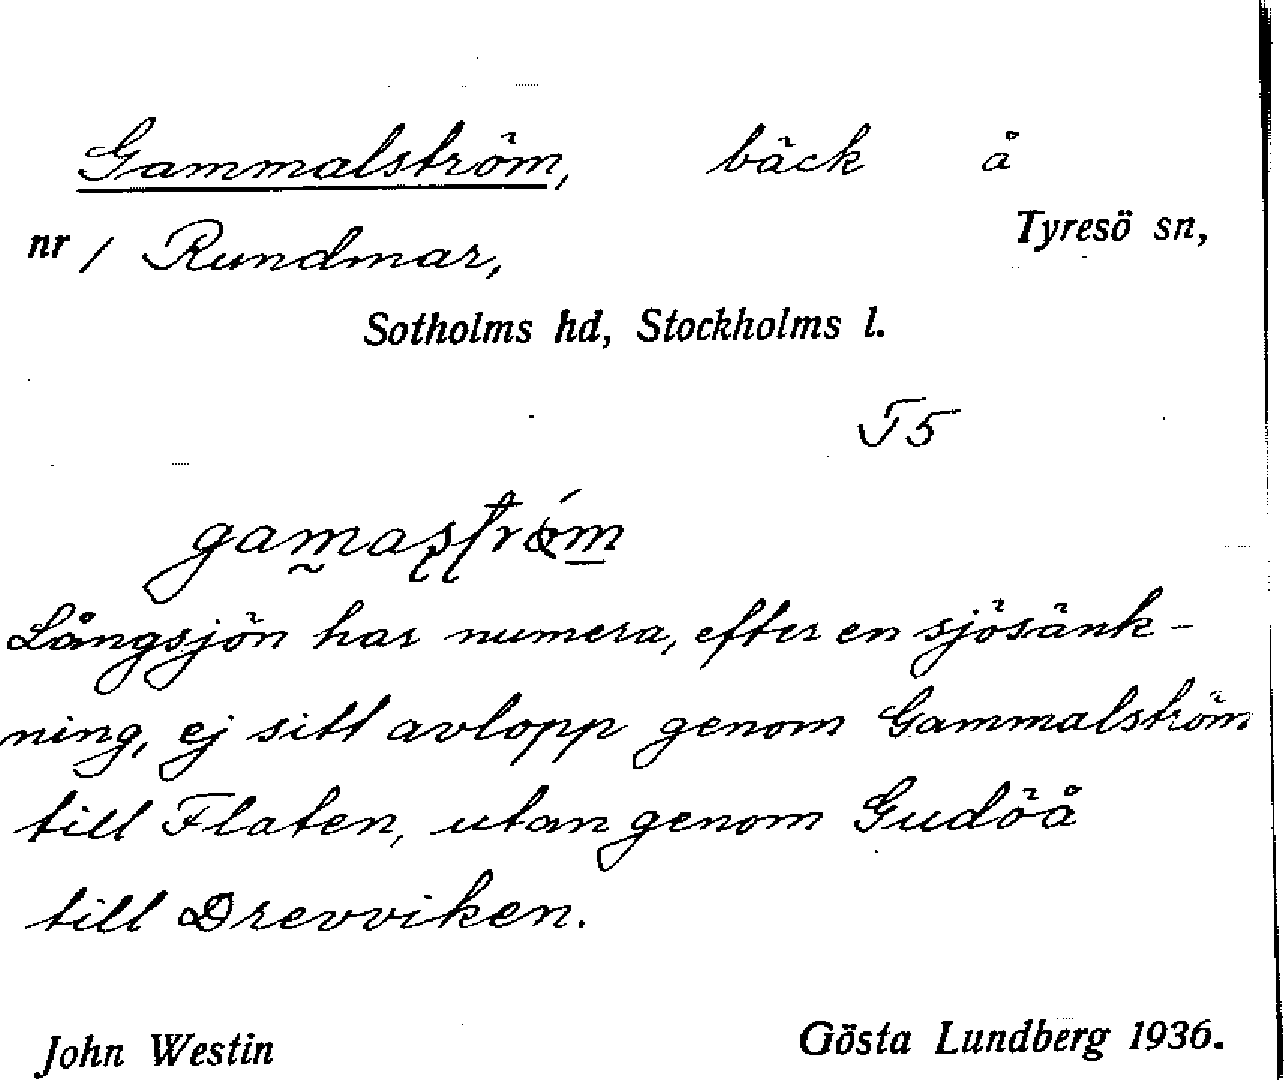 Gammalström, bäck å
nr 1 Rundmar, Tyresö sn,
Sotholms hd, Stockholms l.
T5
gamaström
Långsjön har numera, efter en sjösänk-
ning, ej sitt avlopp genom Gammalström
till Flaten, utan genom Gudöå
till Drevviken.
John Westin Gösta Lundberg 1936.